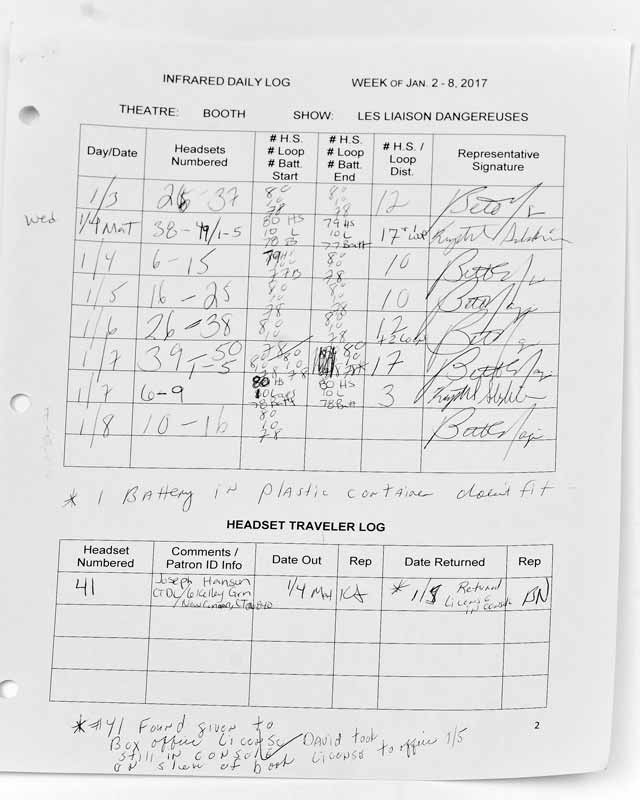 INFRARED DAILY LOG WEEK OF JAN. 2 - 8, 2017
THEATRE: BOOTH SHOW: LES LIAISON DANGEREUSES
Day/Date Headsets Numbered # H.S. # Loop # Batt. Start # H.S. # Loop # Batt. End # H.S. / Loop Dist. Representative Signature
1/3 26 - 37 80 10 78 80 10 78 12
Wed 1/4 Mat 38 - 49/1-5 80 HS 10 L 78 B 79 HS 10 L 77 Batt 17
1/4 6 - 15 79 77B 80 10 78 10
1/5 16 - 25 80 10 78 80 10 78 10
1/6 26 - 38 80 10 78 80 10 78 12
1/7 39 - 50 1-5 80 10 78 80 78 17
1/7 6-9 80 HS 10 78 Batt 80 HS 10 L 78 Batt 3
1/8 10 - 16 80 10 78
* 1 Battery in plastic container doesn't fit
HEADSET TRAVELER LOG
Headset Numbered Comments / Patron ID Info Date Out Rep Date Returned Rep
41 Joseph Hansen CTDL 6 Kelley Grn / New Canaan, CT 1/4 Mat KA * 1/8 Returned License in console BN
* #41 Found given to
Box office License David took
still in console License to office 1/5
2